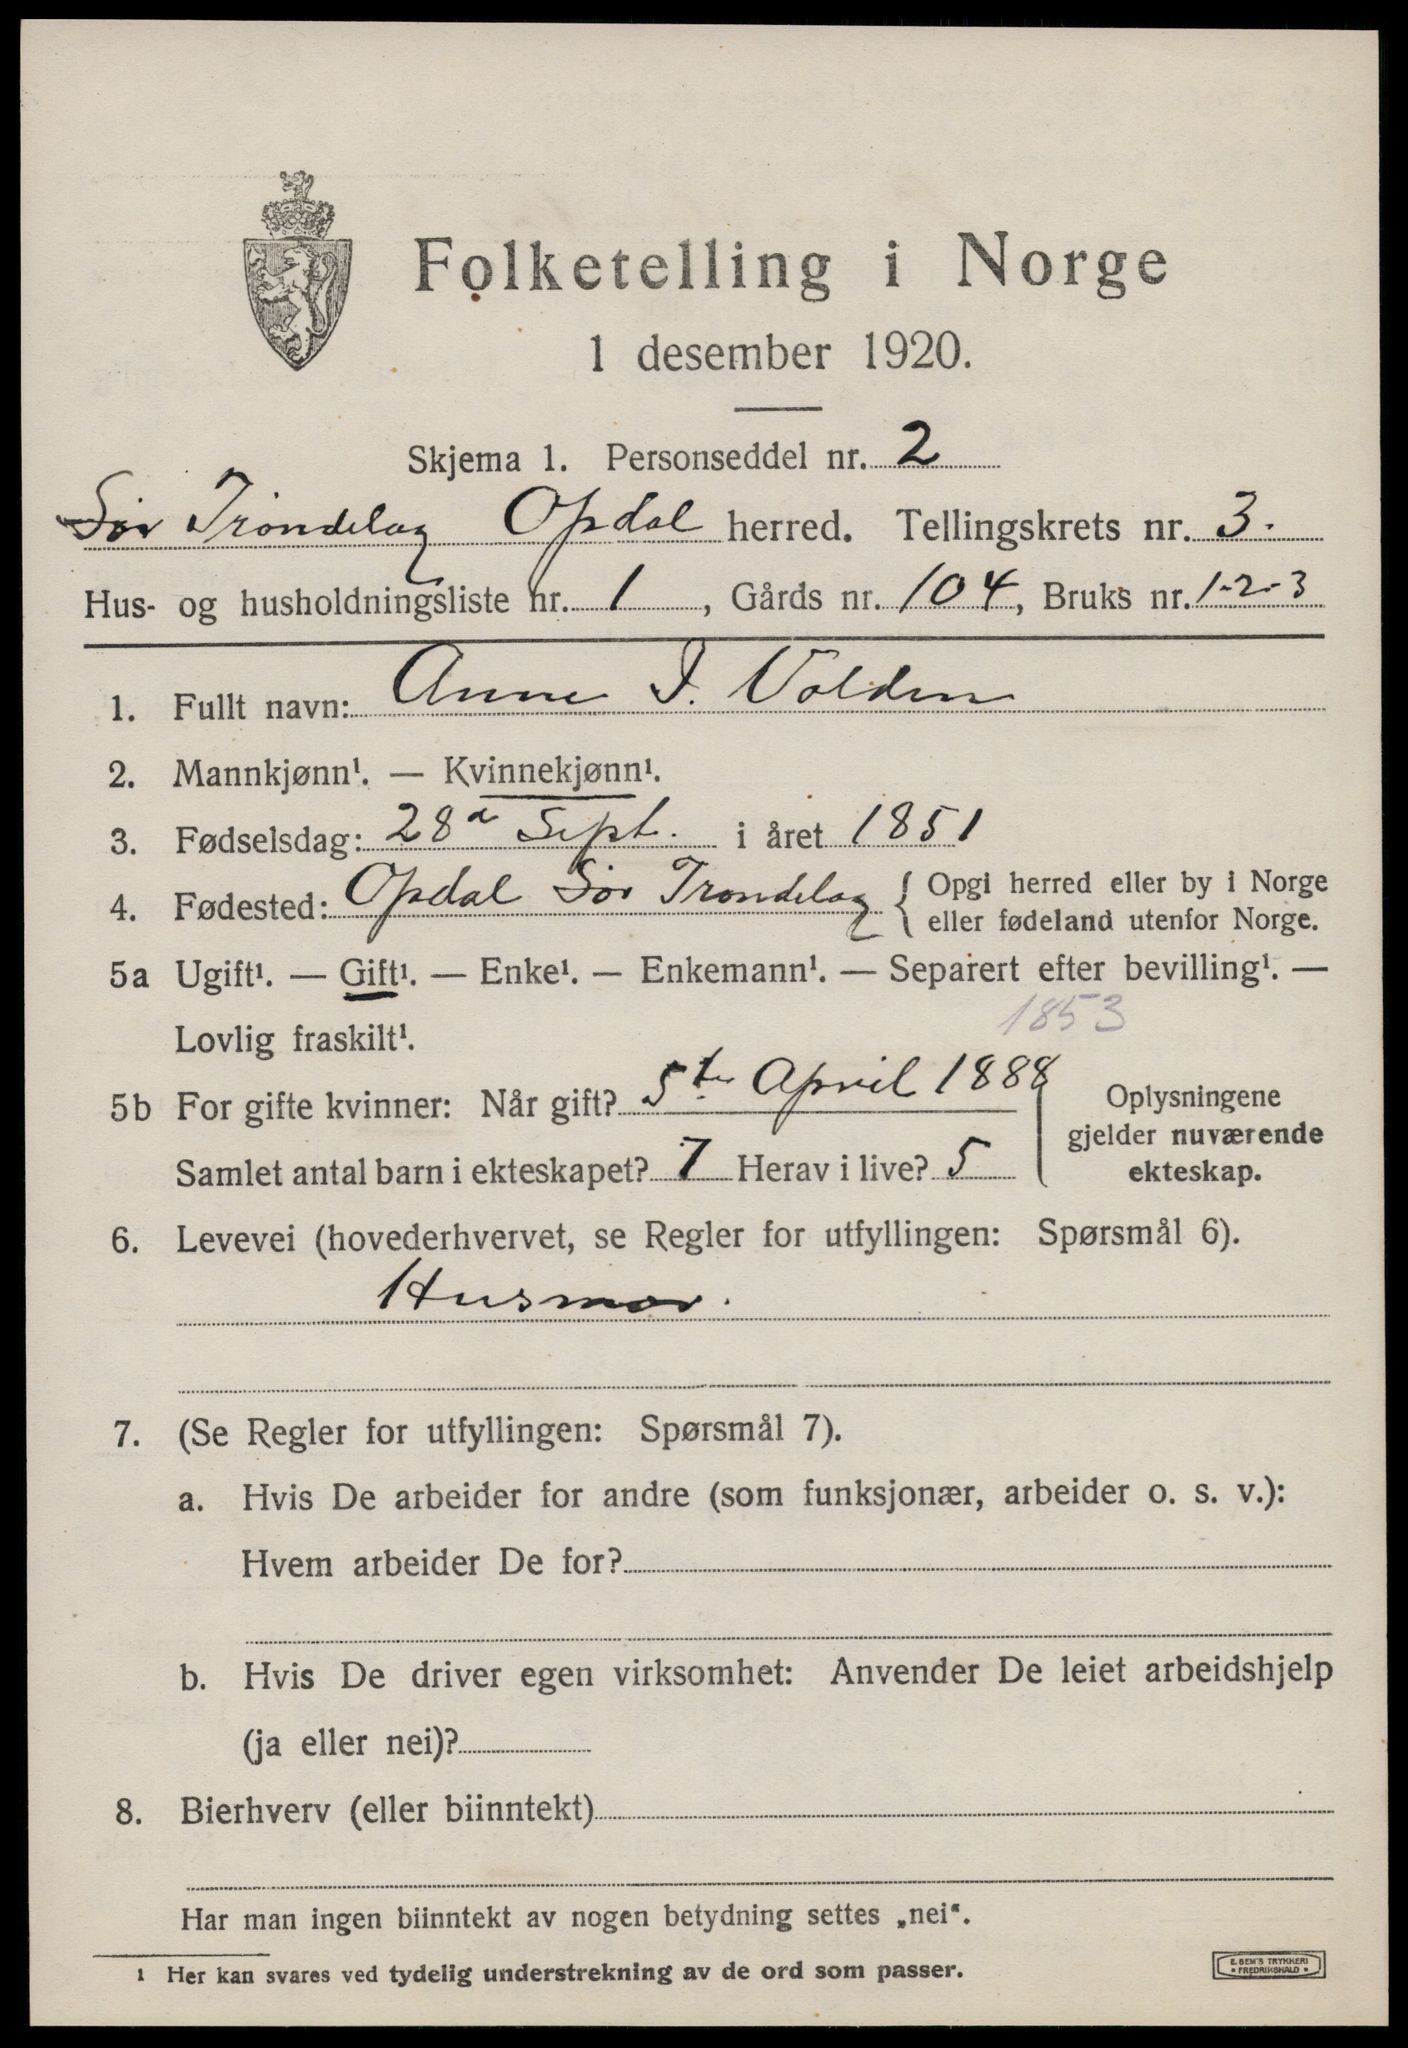 Folketelling i Norge
1 desember 1920.
Skjema 1. Personseddel nr. 2
Sør Trøndelag Opdal herred. Tellingskrets nr. 3.
Hus- og husholdningsliste nr. 1, Gårds nr. 104, Bruks nr. 1-2-3
1. Fullt navn: Anne I. Volden
2. Mannkjønn¹. — Kvinnekjønn¹.
3. Fødselsdag: 28de Sept. i året 1851
4. Fødested: Opdal Sør Trøndelag { Opgi herred eller by i Norge
eller fødeland utenfor Norge.
5a Ugift¹. — Gift¹. — Enke¹. — Enkemann¹. — Separert efter bevilling¹. —
Lovlig fraskilt¹. 1853
5b For gifte kvinner: Når gift? 5te April 1888
Samlet antal barn i ekteskapet? 7 Herav i live? 5
Oplysningene
gjelder nuværende
ekteskap.
6. Levevei (hovederhvervet, se Regler for utfyllingen: Spørsmål 6).
Husmor.
7. (Se Regler for utfyllingen: Spørsmål 7).
a. Hvis De arbeider for andre (som funksjonær, arbeider o. s. v.):
Hvem arbeider De for?
b. Hvis De driver egen virksomhet: Anvender De leiet arbeidshjelp
(ja eller nei)?
8. Bierhverv (eller biinntekt)
Har man ingen biinntekt av nogen betydning settes „nei“.
1 Her kan svares ved tydelig understrekning av de ord som passer.
E. SEM'S TRYKKERI
• FREDRIKSHALD •